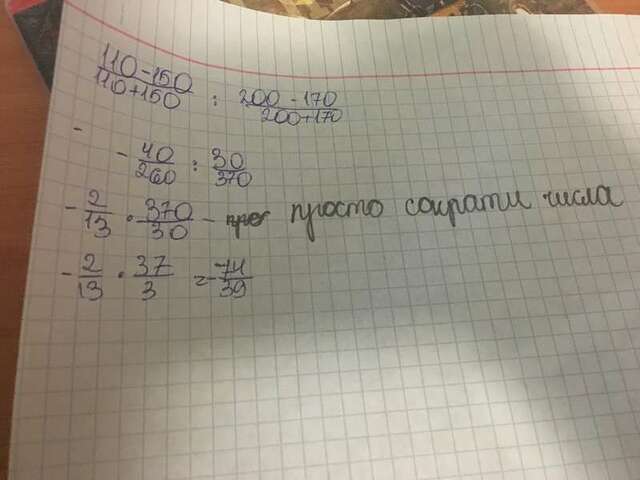 110-150/110+150 : 200-170/200+170
- 40/260 : 30/370
- 2/13 · 370/30 - просто сократи числа
- 2/13 · 37/3 = -74/39